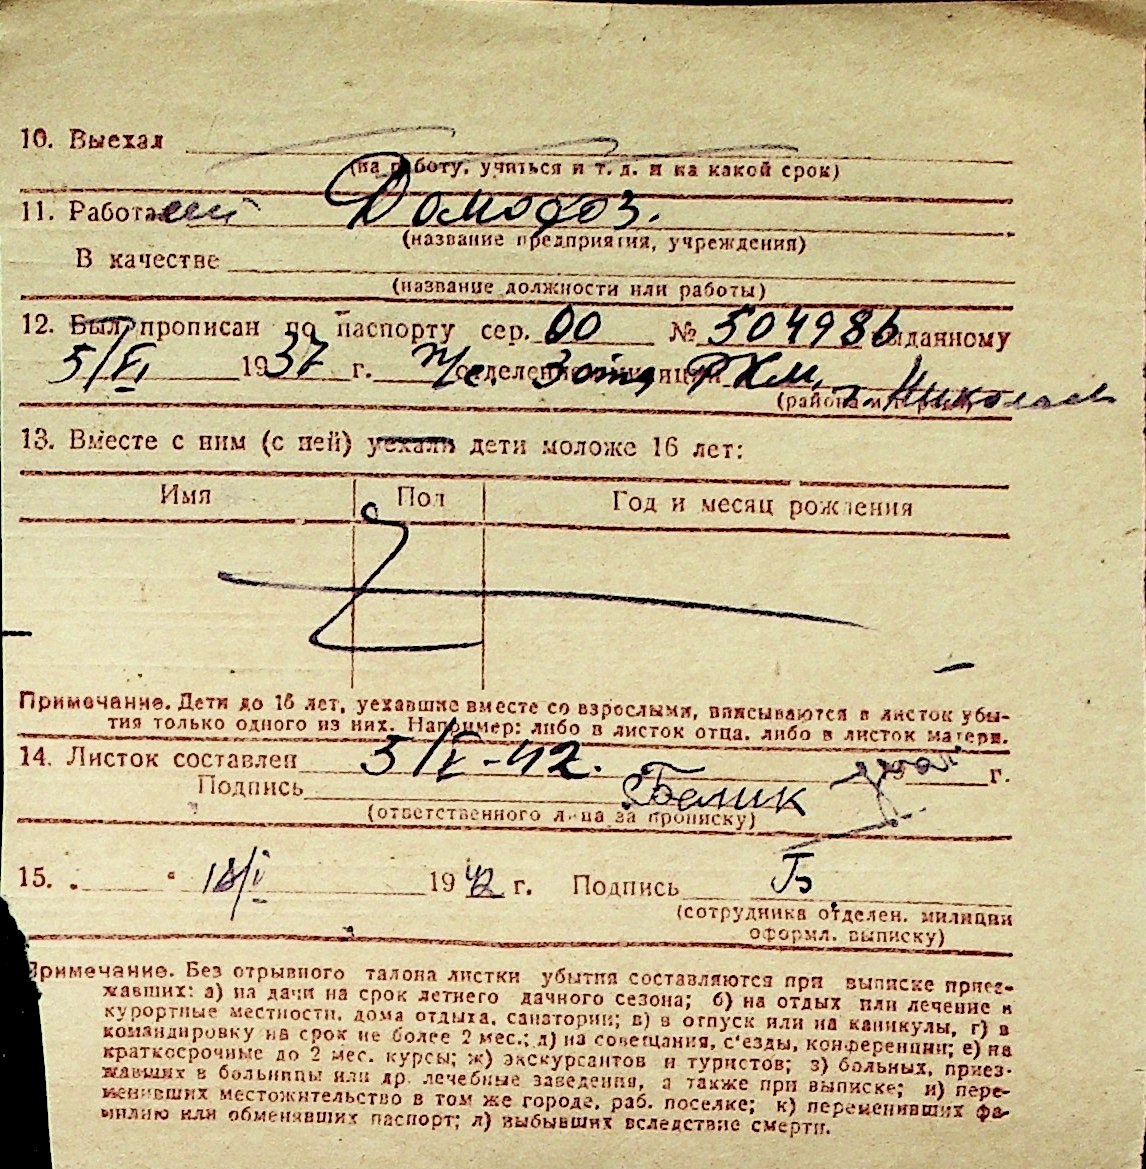 10. Выехал
(на работу, учиться и т. д. и на какой срок)
11. Работа Домохоз.
(название предприятия, учреждения)
В качестве
(название должности или работы)
12. Был прописан по паспорту сер. 00 № 504986 выданному
5/VI 1937 г. отделением милиции РКМ, г. Николаев
(района и города)
13. Вместе с ним (с ней) уехали дети моложе 16 лет:
Имя Пол Год и месяц рождения
Z
Примечание. Дети до 16 лет, уехавшие вместе со взрослыми, вписываются в листок убы-
тия только одного из них. Например: либо в листок отца, либо в листок матери.
14. Листок составлен 5/I-42. г.
Подпись Белик
(ответственного лица за прописку)
15. " 18/I 1942 г. Подпись Б
(сотрудника отделен. милиции
оформл. выписку)
Примечание. Без отрывного талона листки убытия составляются при выписке приез-
жавших: а) на дачи на срок летнего дачного сезона; б) на отдых или лечение в
курортные местности, дома отдыха, санатории; в) в отпуск или на каникулы, г) в
командировку на срок не более 2 мес.; д) на совещания, с'езды, конференции; е) на
краткосрочные до 2 мес. курсы; ж) экскурсантов и туристов; з) больных, приез-
жавших в больницы или др. лечебные заведения, а также при выписке; и) пере-
менивших местожительство в том же городе, раб. поселке; к) переменивших фа-
милию или обменявших паспорт; л) выбывших вследствие смерти.